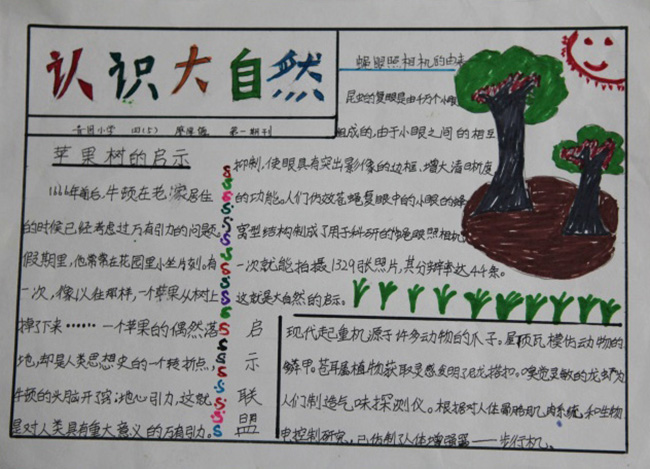 认识大自然
小学 四(5) 第一期刊
苹果树的启示
1666年前后,牛顿在老家居住
的时候已经考虑过万有引力的问题,
假期里,他常常在花园里小坐片刻。有
一次,像以往那样,一个苹果从树上
掉了下来……一个苹果的偶然落
地,却是人类思想史的一个转折点,
牛顿的头脑开了窍:地心引力,这就
是对人类具有重大意义的万有引力。
SSSSSSSSSSSSSSSSSS
蝇眼照相机的由来
昆虫的复眼是由千万个小眼
组成的,由于小眼之间的相互
抑制,使眼具有突出影像的边框,增大清晰度
的功能。人们仿效苍蝇复眼中的小眼的蜂
窝型结构制成了用于科研的蝇眼照相机,
一次就能拍摄1329张照片,其分辨率达44条。
这就是大自然的启示。
启示联盟
现代起重机源于许多动物的爪子。屋顶瓦楞仿动物的
鳞甲。苍耳属植物获取灵感发明了尼龙搭扣。嗅觉灵敏的龙虾为
人们制造气味探测仪。根据对人体骨骼肌肉系统和生物
电控制研究,已仿制了人体增强器——步行机。